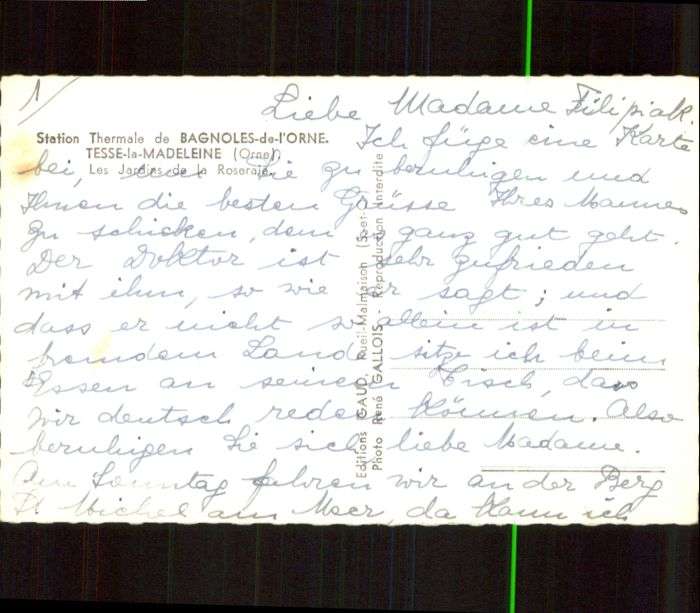 1
Liebe Madame Filipiak.
Station Thermale de BAGNOLES-de-l'ORNE.
TESSE-la-MADELEINE (Orne).
Les Jardins de la Roseraie.
Ich füge eine Karte
bei, um Sie zu beruhigen und
Ihnen die besten Grüsse Ihres Mannes
zu schicken, dem es ganz gut geht.
Der Doktor ist sehr zufrieden
mit ihm, so wie er sagt; und
dass er nicht so allein ist in
fremdem Land, sitze ich beim
Essen an seinem Tisch, dass
wir deutsch reden können. Also
beruhigen Sie sich liebe Madame.
Am Sonntag fahren wir an der Berg
St Michel am Meer, da kann ich
Editions GAUD, Rueil-Malmaison (S.-et-
Photo René GALLOIS - Reproduction interdite